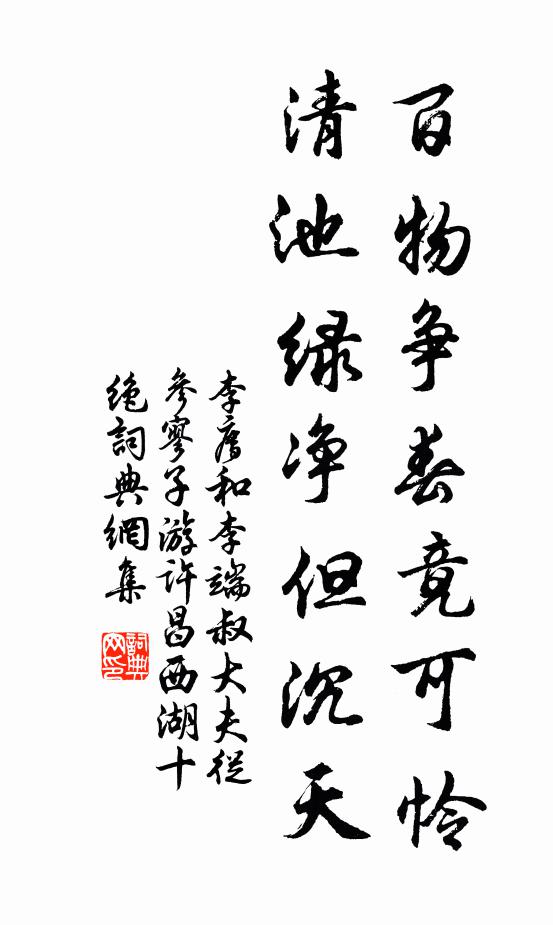 百物争春竟可怜
清池绿净但沉天
李廌和李端叔大夫從
參寥子游許昌西湖十
絶詞典網集
詞典
网印